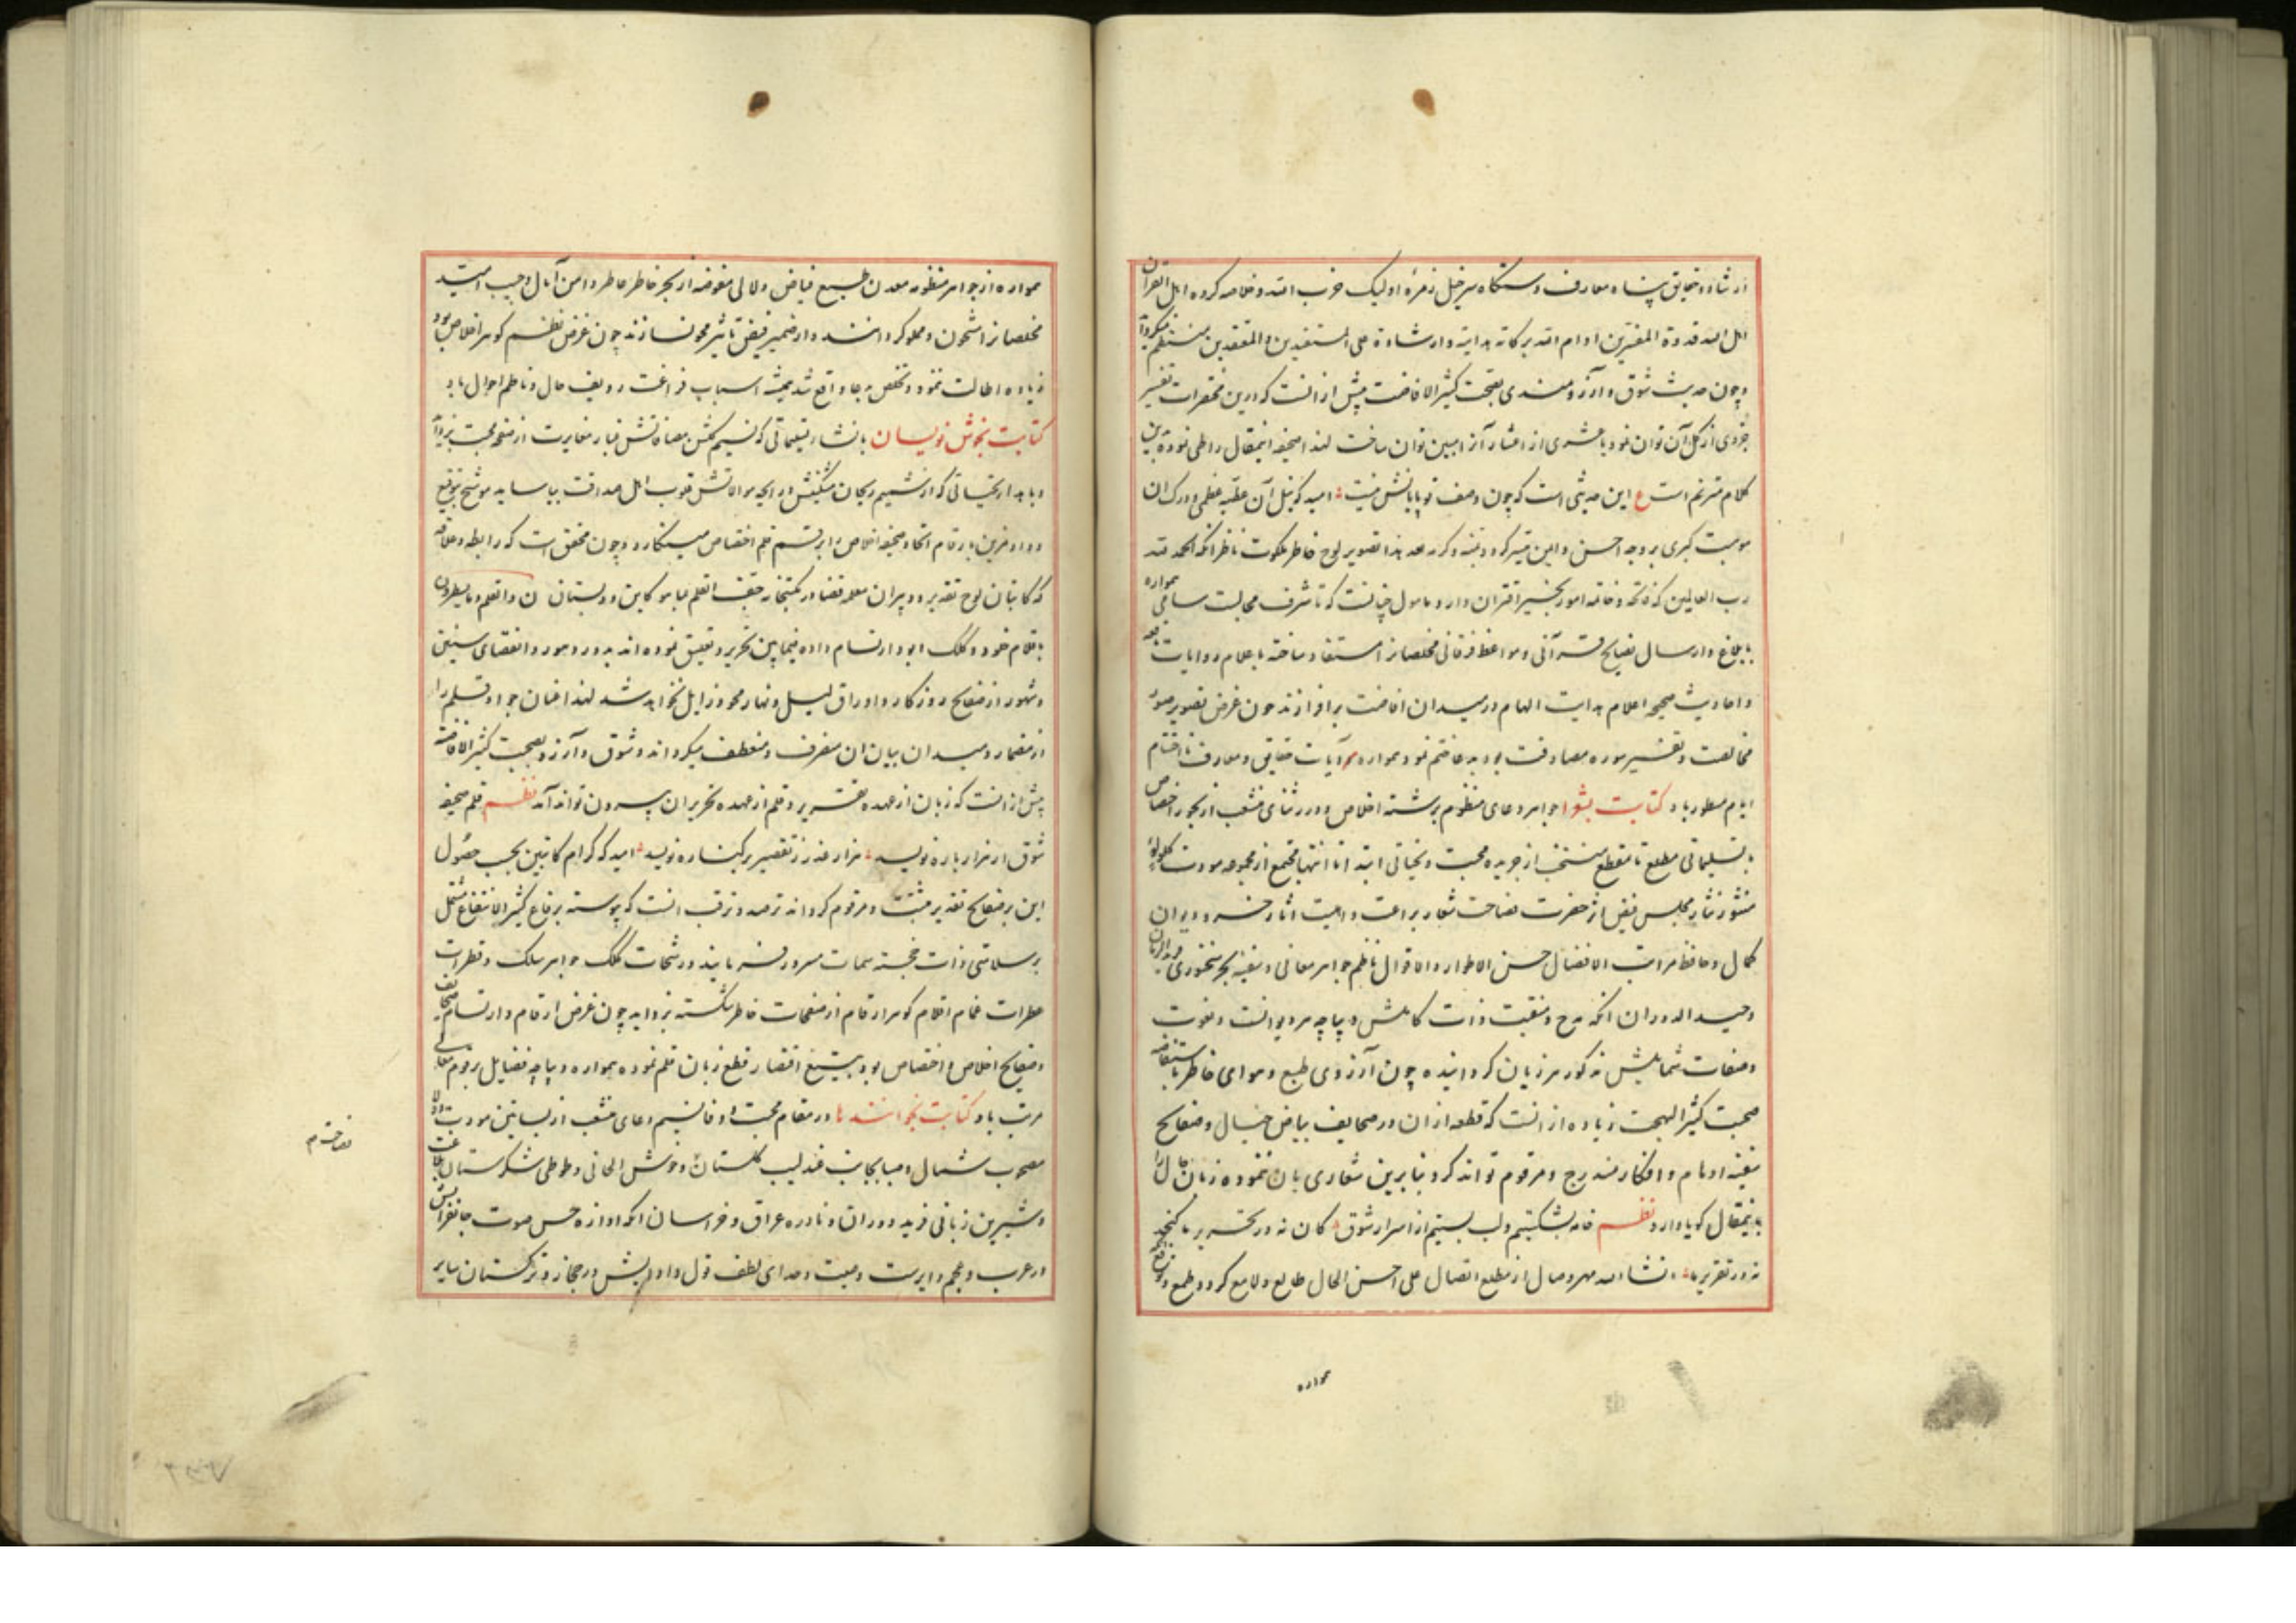 ارشاد حقایق پناه معارف دستگاه سرخیل زمرهٔ اولیک حزب الله و خلاصه کروه اهل القرآن
اهل الله قدوة المفسرین ادام الله برکاته هدایته وارشاده علی المستفیدین والمعتقدین منتظم میکرداند
وچون حدیث شوق وآرزومندی بصحبت کثیر الافاضت بیش از انست که درین مختصرات تفسیر
جزوی از کل آن توان نمود یا عشری از اعشار آنرا مبین توان ساخت لهذا صحیفه اینمقال را طی نموده باین
کلام مترنم است ع این حدیثی است که چون وصف تو پایانش نیست امید که نیل آن عطیه عظمی ودرک ان
موهبت کبری بروجه احسن وایمن میسر کردد بمنه وکرمه بعد هذا تصویر لوح خاطر ملکوت ناظر انکه الحمد لله
رب العالمین که فاتحه وخاتمه امور بخیر اقتران دارد مامول چنانست که تا شرف مجالست سامی همواره
بابلاغ وارسال نصایح قرآنی ومواعظ فرقانی مخلصانرا مستفاد ساخته باعلام روایات
واحادیث صحیحه اعلام هدایت الهام درمیدان افاضت برافرازند چون غرض تصویر صور
مخالصت وتفسیر سوره مصادقت بود بدعا ختم نمود همواره آیات حقایق ومعارف تا اختتام
ایام مسطور باد کتابت بشعرا جواهر دعای منظوم برشته اخلاص ودرر ثنای منشعب از بحور اختصاص
با تسلیماتی مطلع تا مقطع منتخب از جریده محبت وتحیاتی ابتدا تا انتها مجتمع از مجموعه مودت کلؤلؤ
منثور نثار مجلس فیض اثر حضرت فصاحت شعار براعت دثار خسرو دیوان
کمال وحافظ مراتب الافضال حسن الاطوار والاقوال ناظم جواهر معانی وسفینه بحر سخنوری فرید الزمان
وحید الدوران انکه مدح ومنقبت ذات کاملش دیباچه هر دیوانست ونعوت
وصفات شمایلش مذکور هر زبان کردانیده چون آرزوی طبع وهوای خاطر باستفاضه
صحبت کثیر البهجت زیاده از انست که قطعه از ان در صحایف بیاض خیال وصفایح
سفینه اوهام وافکار مندرج ومرقوم تواند کرد بنابرین شعاری بان ننموده زبان حال را
باینمقال کویا دارد نظم خامه بشکستیم ولب بستیم از اسرار شوق کان نه در تحریر ما کنجد
نه در تقریر ما انشاء الله مهر وصال از مطلع اتصال علی احسن الحال طالع ولامع کردد وطبع
همواره
همواره از جواهر منظومه معدن طبع فیاض ولالی مفوضه از بحر خاطر عاطر دامن آمال وجیب امید
مخلصانرا مشحون ومملو کردانند واز ضمیر فیض تاثیر محو نسازند چون غرض نظم کوهر اخلاص بود
زیاده اطالت ننمود وتخلص بدعا واقع شد همیشه اسباب فراغت ردیف حال وناظم احوال باد
کتابت بخوش نویسان بانشاء تسلیماتی که نسیم کلشن مصافاتش غبار مغایرت از صفحه محبت بزداید
وباهداء تحیاتی که از شمیم ریحان مشکینش ورایحه موالاتش قلوب اهل صداقت بیاساید موشح بتوقیع
وداد قرین بارقام اتحاد صحیفه اخلاص را برقم قلم اختصاص مینکارد وچون محقق است که رابطه وعلاقه
که کاتبان لوح تقدیر ودبیران معلمه قضا در مکتبخانه جف القلم بما هو کاین ودبستان ن والقلم وما یسطرون
باقلام خود وکلک ابود ارتسام داده فیمابین تحریر وتعیین نموده اند بدور دهور وانقضای سنین
وشهور از صفایح روزکار واوراق لیل ونهار محو وزایل نخواهد شد لهذا عنان جواد قلم را
از مضمار ومیدان بیان ان مصرف ومنعطف میکرداند وشوق وآرزو بصحبت کثیر الافاضه
بیش از انست که زبان از عهده تقریر وقلم از عهده تحریر ان بیرون تواند آمد نظم قلم صحیفه
شوق ار هزار باره نویسد هزار عذر ز تقصیر بر کناره نویسد امید که کرام کاتبین بحسب حصول
این بر صفایح تقدیر مثبت ومرقوم کرداند ترصد وترقب انست که پیوسته برقاع کثیر الانتفاع مشتمل
بر سلامتی ذات خجسته سمات مسرور فرمایند ورشحات کلک جواهر سلک وقطرات
مطرات غمام اقلام کوهر ارقام از صفحات خاطر شکسته بزداید چون غرض ارقام وارتسام صحایف
وصفایح اخلاص واختصاص بود بتیغ اقتصار قطع زبان قلم نموده همواره دیباچه فضایل برقوم معانی
مرتب باد کتابت بخوانندها در مقام محبت ووفا نسیم دعای منشعب از بساتین مودت وولا
مصحوب شمال وصبا بجانب عندلیب کلستان خوش الحانی وطوطی شکرستان بلاغت
وشیرین زبانی فرید دوران ونادره عراق وخراسان انکه اوازه حسن صوت جانفزایش
در عرب وعجم دایرست وصیت وصدای لطف قول وادایش در حجاز وترکستان سایر